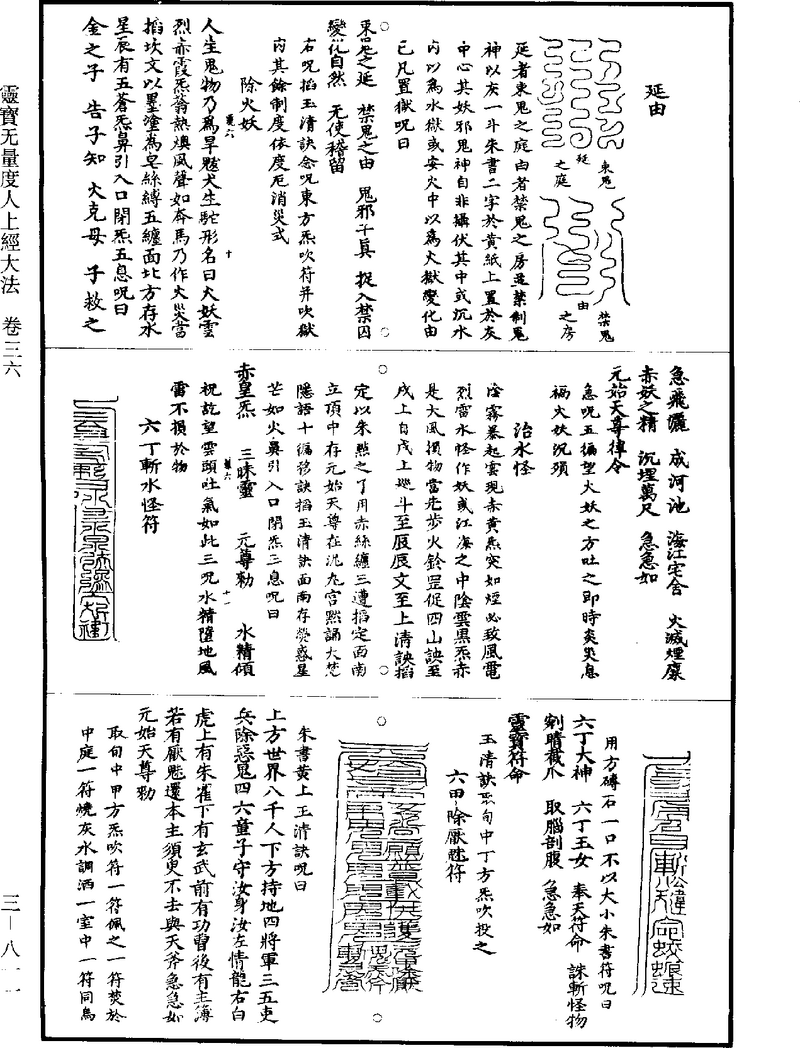 靈寶无量度人上經大法　卷三六
三—八一一
延由
東鬼
延
之庭
禁鬼
由
之房
延者東鬼之庭由者禁鬼之房並禁制鬼
神以灰一斗朱書二字於黃紙上置於灰
中心其妖邪鬼神自非攝伏其中或沉水
內以為水獄或安火中以為火獄變化由
已凡置獄呪曰
東鬼之延　禁鬼之由　鬼邪斗真　捉入禁囚
變化自然　无使稽留
右呪搯玉清訣念呪東方炁吹符并吹獄
內其餘制度依度厄消災式
除火妖
人生鬼物乃為旱魃犬生駝形名曰火妖雲
烈赤霞炁蓊熱燠風聲如奔馬乃作火災當
搯坎文以墨塗為皂絲縛五纏面北方存水
星辰有五蒼炁鼻引入口閉炁五息呪曰
金之子　告子知　火克母　子救之
急飛灑　成河池　海江宅舍　火滅煙靡
赤妖之精　沉埋萬尺　急急如
元始天尊律令
急呪五徧望火妖之方吐之即時炎災息
禍火妖沉殞
治水怪
陰霧暴起雲現赤黃炁突如煙必致風電
烈雷水怪作妖或江海之中陰雲黑炁赤
是大風損物當先步火鈴罡促四山訣至
戌上自戌上巡斗至辰辰文至上清訣搯
定以朱熬之了用赤絲纏三遭搯定面南
立頂中存元始天尊在泥丸宮黙誦大梵
隱語十徧移訣搯玉清訣面南存熒惑星
芒如火鼻引入口閉炁三息呪曰
赤皇炁　三昧靈　元尊勑　水精傾
祝訖望雲頭吐氣如此三呪水精墮地風
雷不損於物
六丁斬水怪符
用方磚石一口不以大小朱書符呪曰
六丁大神　六丁玉女　奉天符命　誅斬怪物
剜睛截爪　取腦剖腹　急急如
靈寶符命
玉清訣取旬中丁方炁吹投之
六甲除厭魅符
朱書黃上玉清訣呪曰
上方世界八千人下方持地四將軍三五吏
兵除惡鬼四六童子守汝身汝左情龍右白
虎上有朱雀下有玄武前有功曹後有主簿
若有厭魅還本主須臾不去與天斧急急如
元始天尊勑
取旬中甲方炁吹符一符佩之一符焚於
中庭一符燒灰水調洒一室中一符同烏